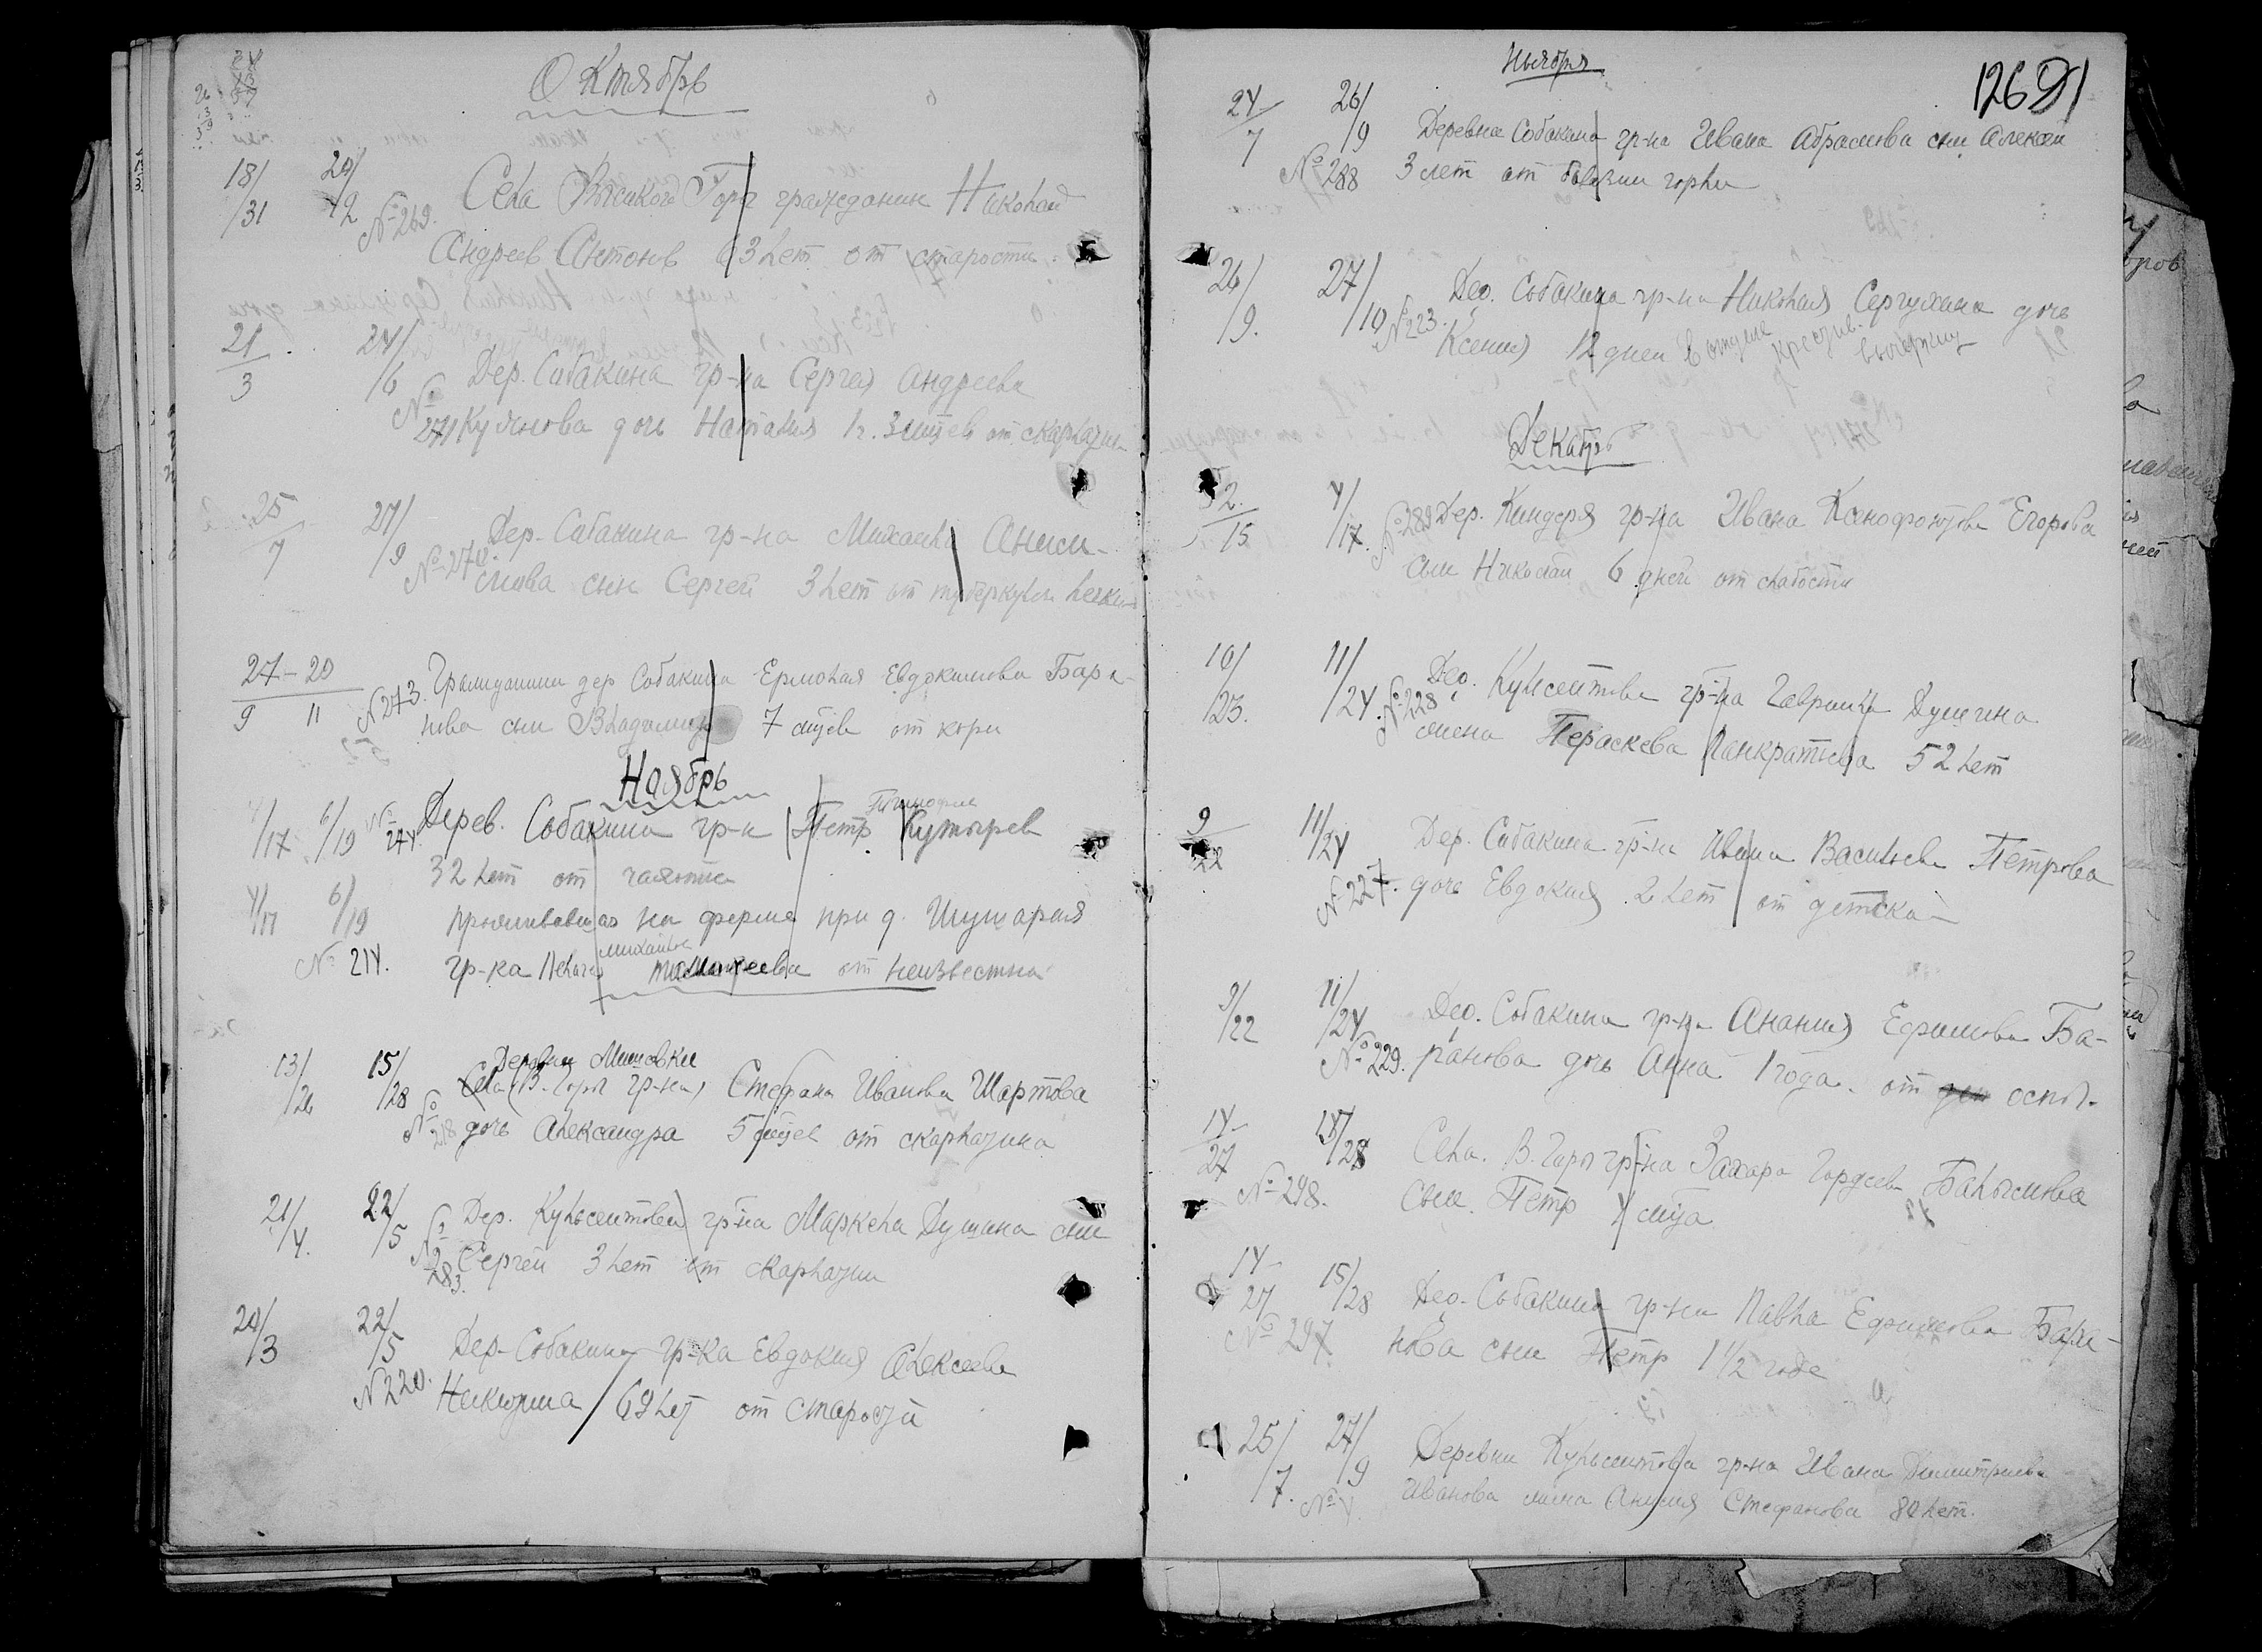 Октябрь
18/31 20/2 №269. Села Высокой Горы гражданин Николай
Андреев Антонов 63 лет от старости.
21/3 24/6 Дер. Сабакина гр-на Сергея Андреева
№271 дочь Наталия 1 г. 3 мцев от скарлатин
25/7 27/9 Дер. Сабакина гр-на Михаила Аниси-
№270. мова сын Сергей 3 лет от туберкулеза легких
27-29
9 11 №273. Гражданина дер Собакина Ермолая Евдокимова Бара-
нова сын Владимир 7 мцев от кори
Ноябрь
4/17 6/19 №274. Дерев. Собакина гр-н Петр Кутырев
32 лет от чахотки
4/17 6/19 проживавшая на ферме при д. Шушарма
№ 214. гр-ка от неизвестна
13/26 15/28 Деревни
Села В. Горы гр-на Стефана Иванова Шартова
№218 дочь Александра 5 мцев от скарлатина
21/4. 22/5 Дер. Кульсеитова гр-на Маркела Душина сын
№283. Сергей 3 лет от скарлатин
20/3 22/5 Дер. Собакина гр-ка Евдокия Алексеева
№220. 69 лет от старости
Ноября
126
24/7 26/9 Деревня Собакина гр-на Ивана Абрамова сын Алексей
№288 3 лет от болезни горла
26/9. 27/10 Дер. Собакина гр-на Николая Сергушина дочь
№223. Ксения 12 дней
Декабрь
2/15 4/17. №289 Дер. Киндеря гр-на Ивана Ксенофонтова Егорова
сын Николай 6 дней от слабости
10/23. 11/24. Дер. Кульсеитова гр-на Гаврила Душина
№228 жена Параскева Панкратьева 52 лет
9/22 11/24 Дер. Сабакина гр-на Ивана Васильева Петрова
№227. дочь Евдокия 2 лет от детской
9/22 11/24 Дер. Собакина гр-на Анания Ефимова Ба-
№229. ранова дочь Анна 1 года. от оспы.
14/27 15/28 Села. В. Горы гр-на Захара Гордеева Балыкова
№298. сын. Петр 4 мца
14/27 15/28 Дер. Собакина гр-на Павла Ефимова Бара-
№297. нова сын Петр 1 1/2 года
25/7. 27/9 Деревни Кульсеитова гр-на Ивана Димитриева
№ Иванова жена Анисия Стефанова 80 лет.